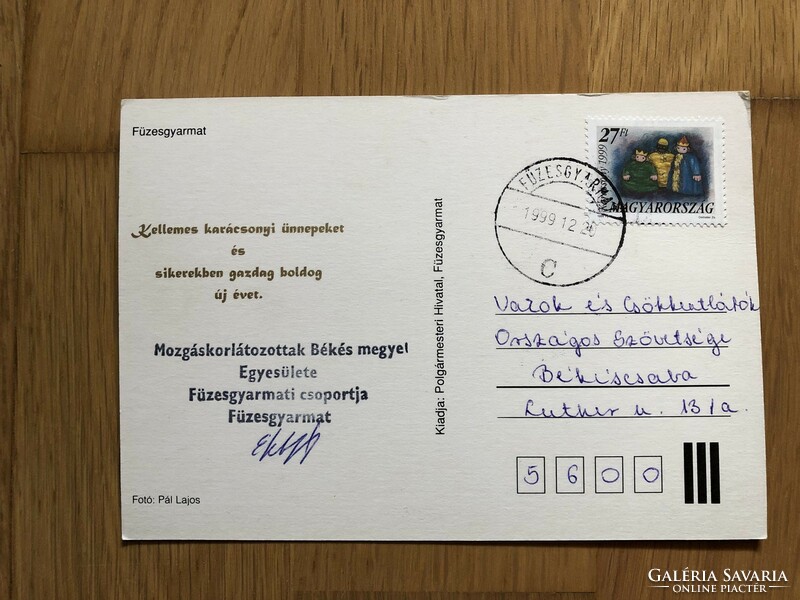 Füzesgyarmat
Kellemes karácsonyi ünnepeket
és
sikerekben gazdag boldog
új évet.
Mozgáskorlátozottak Békés megyei
Egyesülete
Füzesgyarmati csoportja
Füzesgyarmat
Fotó: Pál Lajos
Kiadja: Polgármesteri Hivatal, Füzesgyarmat
27Ft
1999
MAGYARORSZÁG
FÜZESGYARMAT
1999 12 20
C
Vakok és
Országos Szövetsége
Békéscsaba
Luther u. 13/a.
5 6 0 0
GALÉRIA SAVARIA
ONLINE PIACTÉR